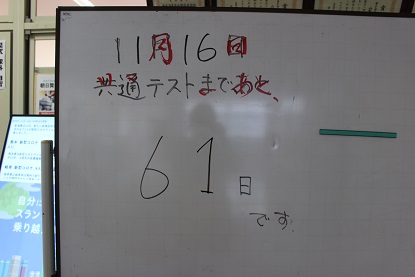 11月16日
共通テストまであと、
61日
です.
自分に
スラン
乗り越